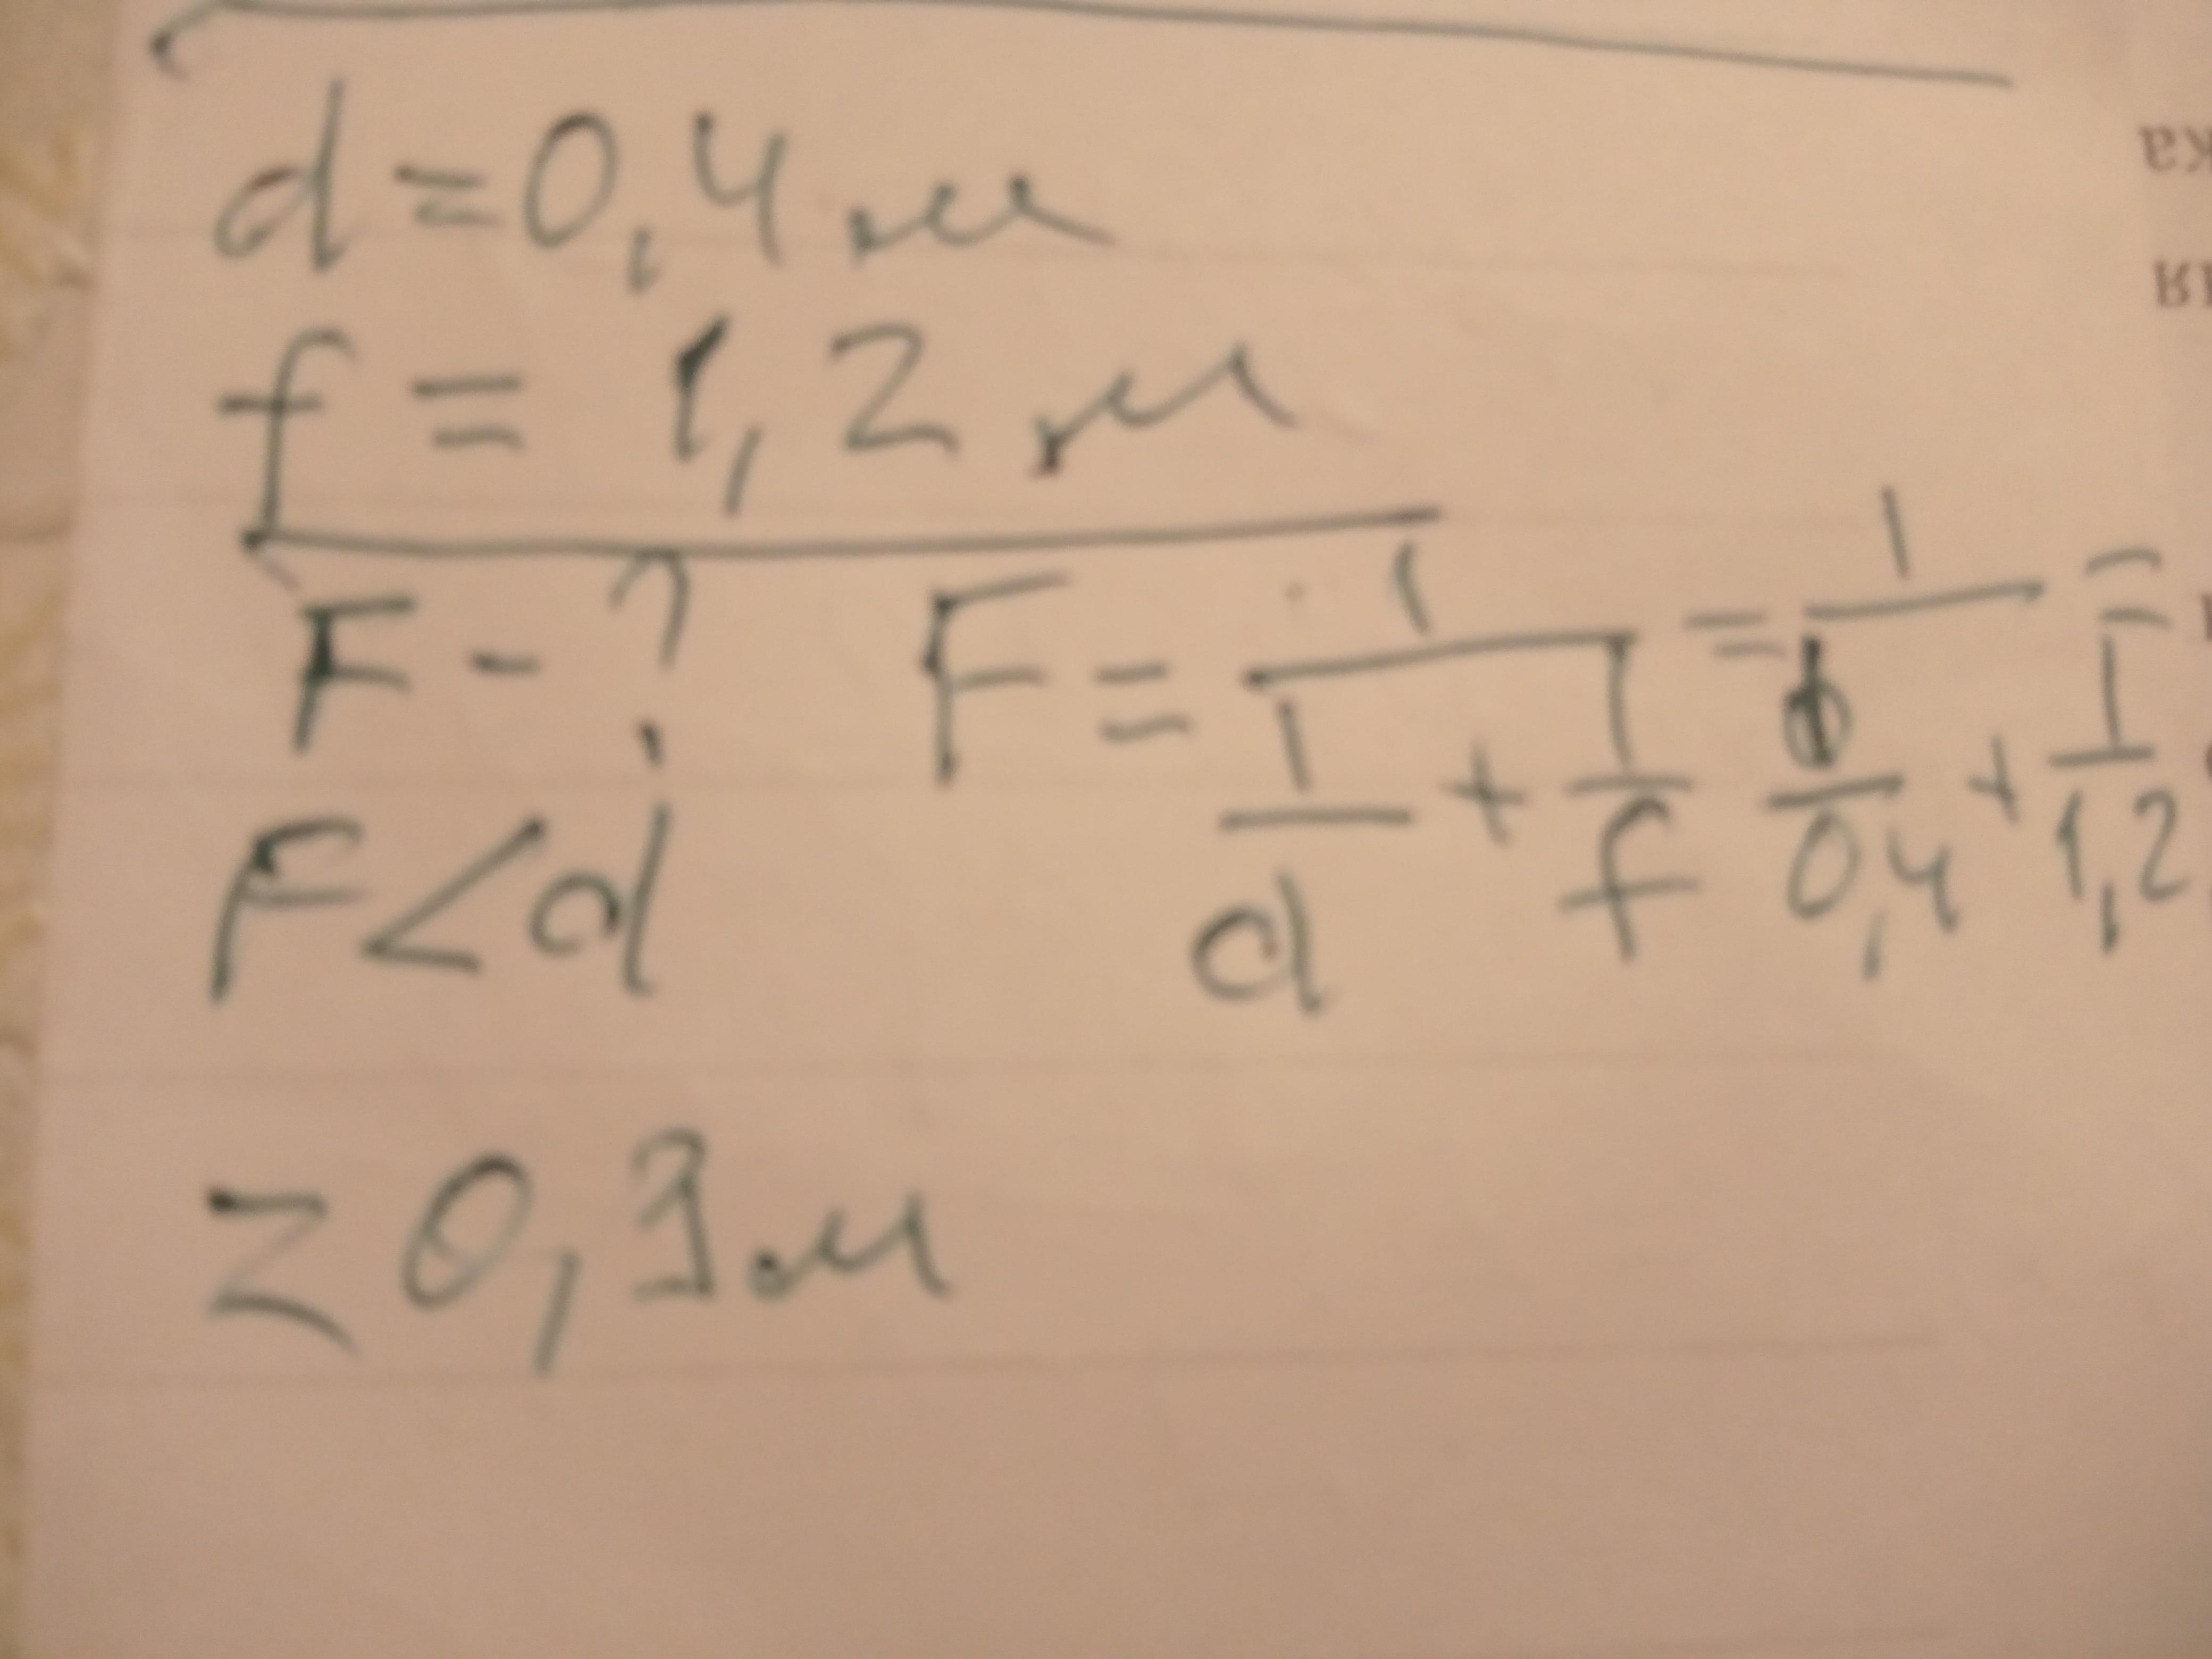 d = 0,4 м
f = 1,2 м
F - ?
F = 1/(1/d + 1/f) = 1/(1/0,4 + 1/1,2) =
F < d
= 0,3 м
ка